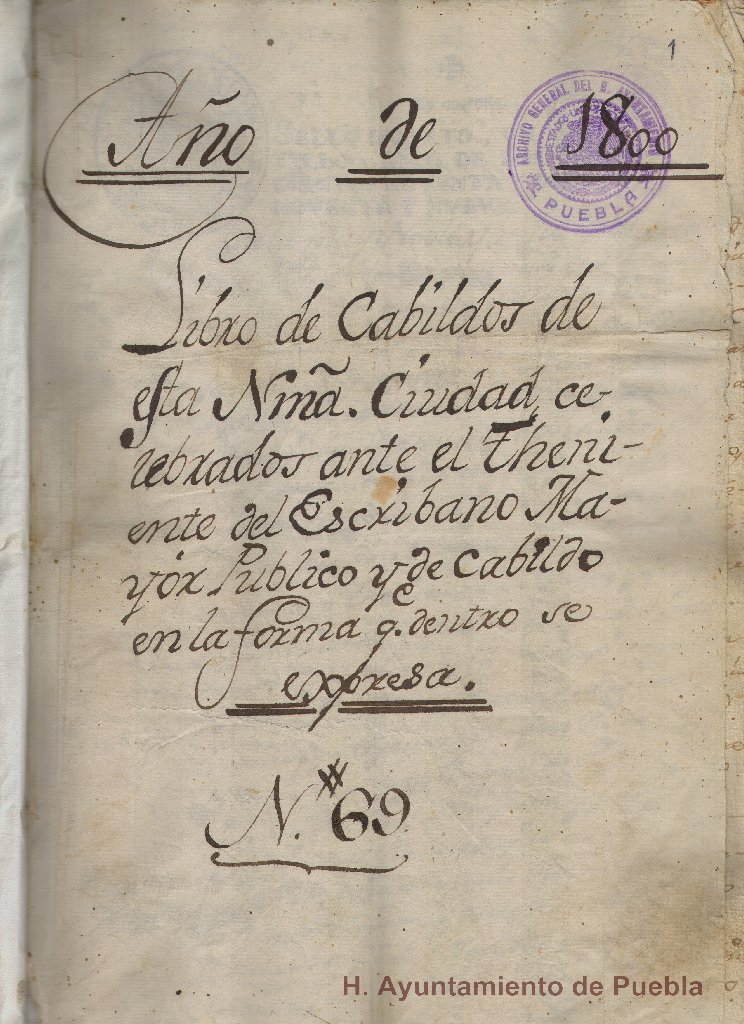 1
Año de 1800
ARCHIVO GENERAL DEL H. AYUNTAMIENTO
PUEBLA
Libro de Cabildos de
esta Nmã. Ciudad, ce-
lebrados ante el Theni-
ente del Escribano Ma-
yor Publico y de Cabildo
en la forma q.e dentro se
expresa.
N. 69
H. Ayuntamiento de Puebla